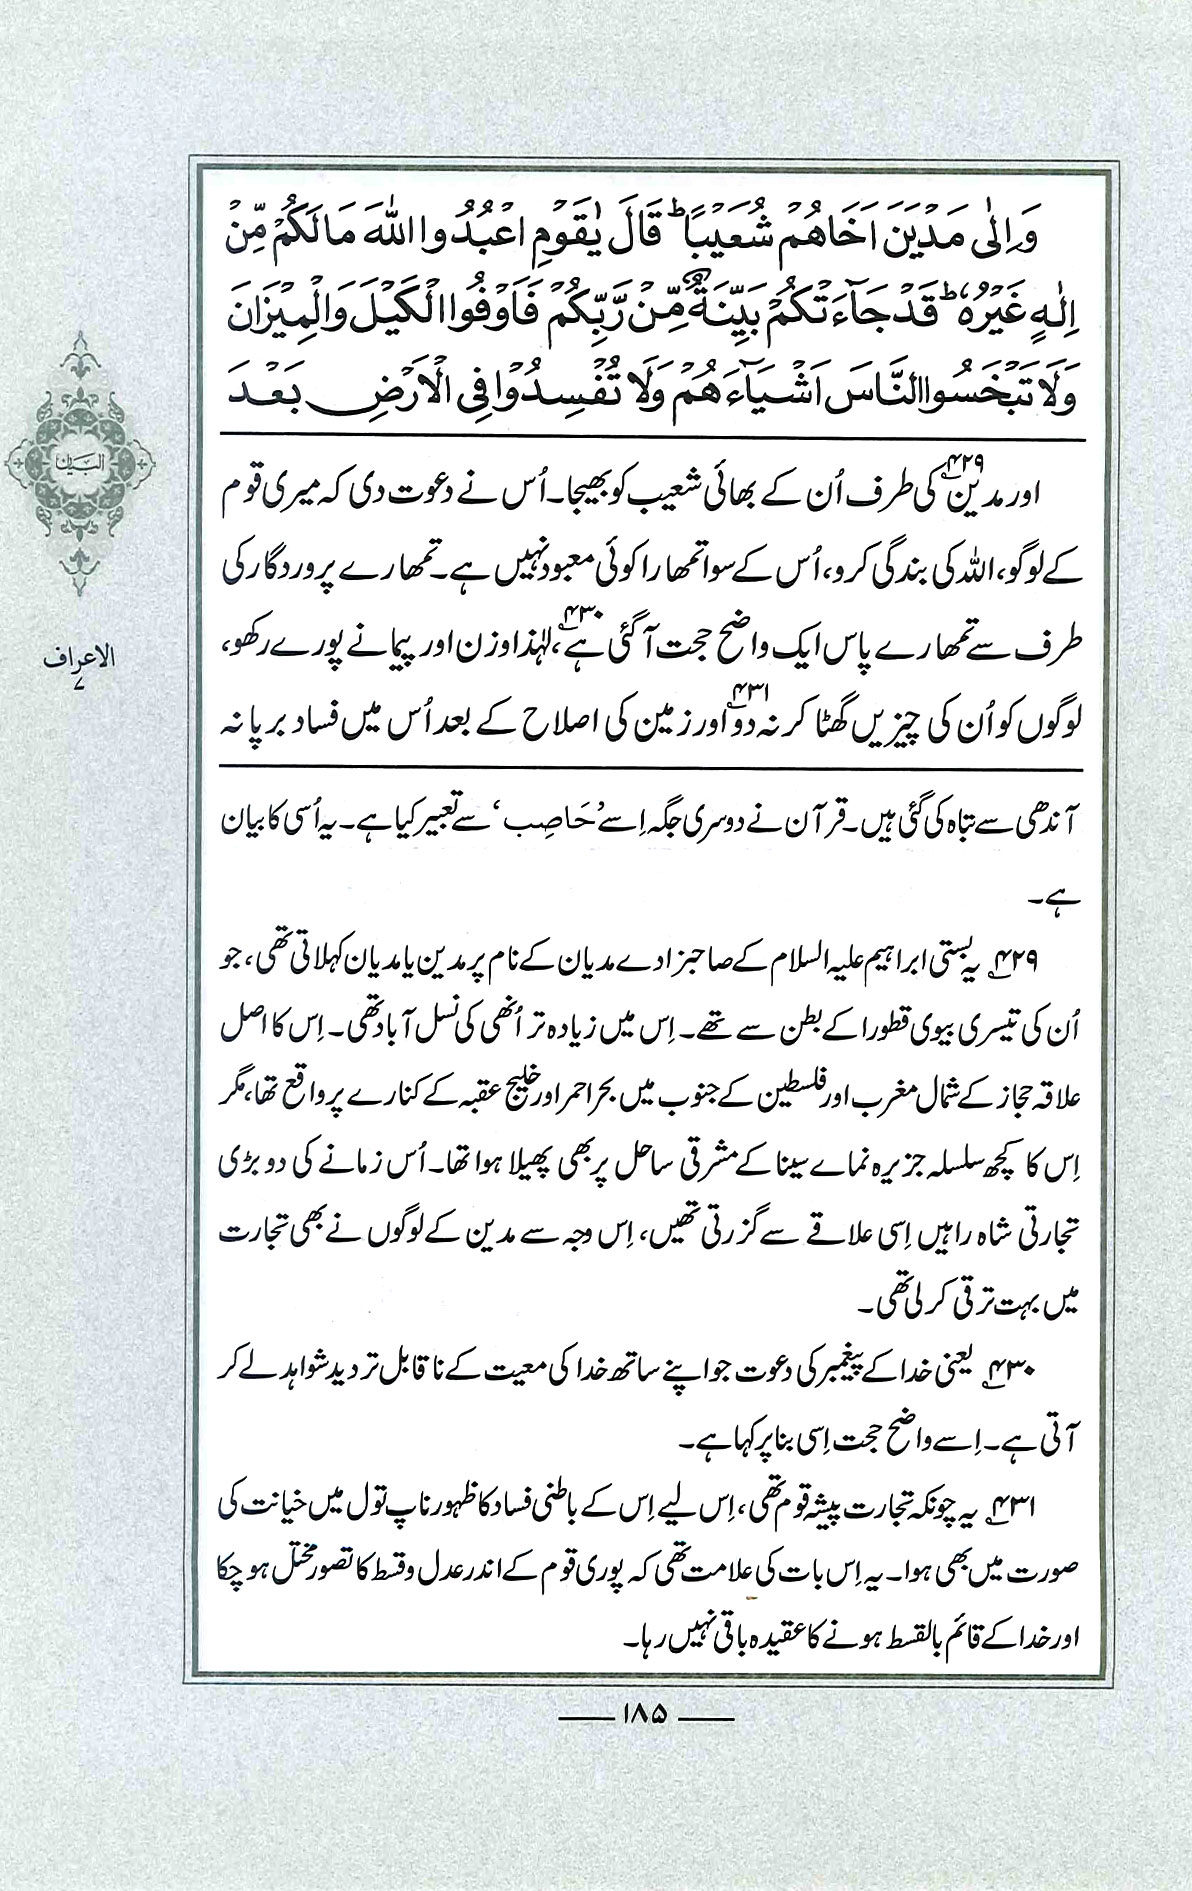 وَاِلٰى مَدْيَنَ اَخَاهُمْ شُعَيْبًا ؕ قَالَ يٰقَوْمِ اعْبُدُوا اللّٰهَ مَا لَكُمْ مِّنْ
اِلٰهٍ غَيْرُهٗ ؕ قَدْ جَآءَتْكُمْ بَيِّنَةٌ مِّنْ رَّبِّكُمْ فَاَوْفُوا الْكَيْلَ وَالْمِيْزَانَ
وَلَا تَبْخَسُوا النَّاسَ اَشْيَآءَهُمْ وَلَا تُفْسِدُوْا فِى الْاَرْضِ بَعْدَ
اور مدین۴۲۹ کی طرف اُن کے بھائی شعیب کو بھیجا۔ اُس نے دعوت دی کہ میری قوم
کے لوگو، اللہ کی بندگی کرو، اُس کے سوا تمھارا کوئی معبود نہیں ہے۔ تمھارے پروردگار کی
طرف سے تمھارے پاس ایک واضح حجت آ گئی ہے۴۳۰، لہٰذا وزن اور پیمانے پورے رکھو،
لوگوں کو اُن کی چیزیں گھٹا کر نہ دو۴۳۱ اور زمین کی اصلاح کے بعد اُس میں فساد برپا نہ
البیان
الاعراف
۷
آندھی سے تباہ کی گئی ہیں۔ قرآن نے دوسری جگہ اِسے ’حَاصِب‘ سے تعبیر کیا ہے۔ یہ اُسی کا بیان
ہے۔
۴۲۹ یہ بستی ابراہیم علیہ السلام کے صاحبزادے مدیان کے نام پر مدین یا مدیان کہلاتی تھی، جو
اُن کی تیسری بیوی قطورا کے بطن سے تھے۔ اِس میں زیادہ تر اُنھی کی نسل آباد تھی۔ اِس کا اصل
علاقہ حجاز کے شمال مغرب اور فلسطین کے جنوب میں بحر احمر اور خلیج عقبہ کے کنارے پر واقع تھا، مگر
اِس کا کچھ سلسلہ جزیرہ نماے سینا کے مشرقی ساحل پر بھی پھیلا ہوا تھا۔ اُس زمانے کی دو بڑی
تجارتی شاہ راہیں اِسی علاقے سے گزرتی تھیں، اِس وجہ سے مدین کے لوگوں نے بھی تجارت
میں بہت ترقی کر لی تھی۔
۴۳۰ یعنی خدا کے پیغمبر کی دعوت جو اپنے ساتھ خدا کی معیت کے ناقابل تردید شواہد لے کر
آتی ہے۔ اِسے واضح حجت اِسی بنا پر کہا ہے۔
۴۳۱ یہ چونکہ تجارت پیشہ قوم تھی، اِس لیے اِس کے باطنی فساد کا ظہور ناپ تول میں خیانت کی
صورت میں بھی ہوا۔ یہ اِس بات کی علامت تھی کہ پوری قوم کے اندر عدل و قسط کا تصور مختل ہو چکا
اور خدا کے قائم بالقسط ہونے کا عقیدہ باقی نہیں رہا۔
۱۸۵